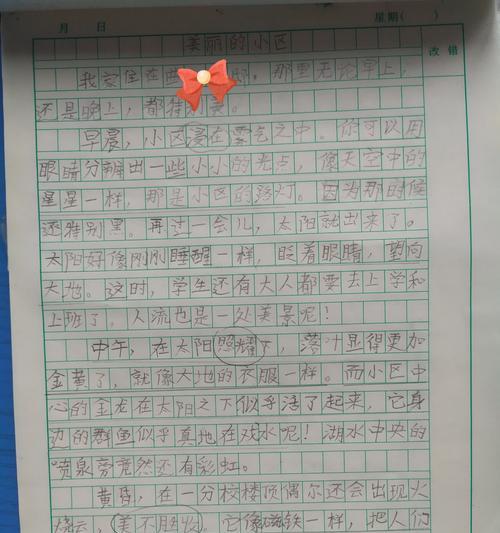 月 日 星期( )
改错
美丽的小区
我家住在 邸。那里无论早上,
还是晚上,都特别美。
早晨,小区浸在雾气之中。你可以用
眼睛分辨出一些小小的光点,像天空中的
星星一样,那是小区的路灯。因为那时候
还特别黑。再过一会儿,太阳就出来了。
太阳好像刚刚睡醒一样,眨着眼睛,望向
大地。这时,学生还有大人都要去上学和
上班了,人流也是一处美景呢!
中午,在太阳照耀下,落叶显得更加
金黄了,就像大地的衣服一样。而小区中
心的金龙在太阳之下似乎活了起来,它身
边的群鱼似乎真地在戏水呢!湖水中央的
喷泉旁竟然还有彩虹。
黄昏,在一分校楼顶偶尔还会出现火
烧云,美不胜收。它像磁铁一样,把人们